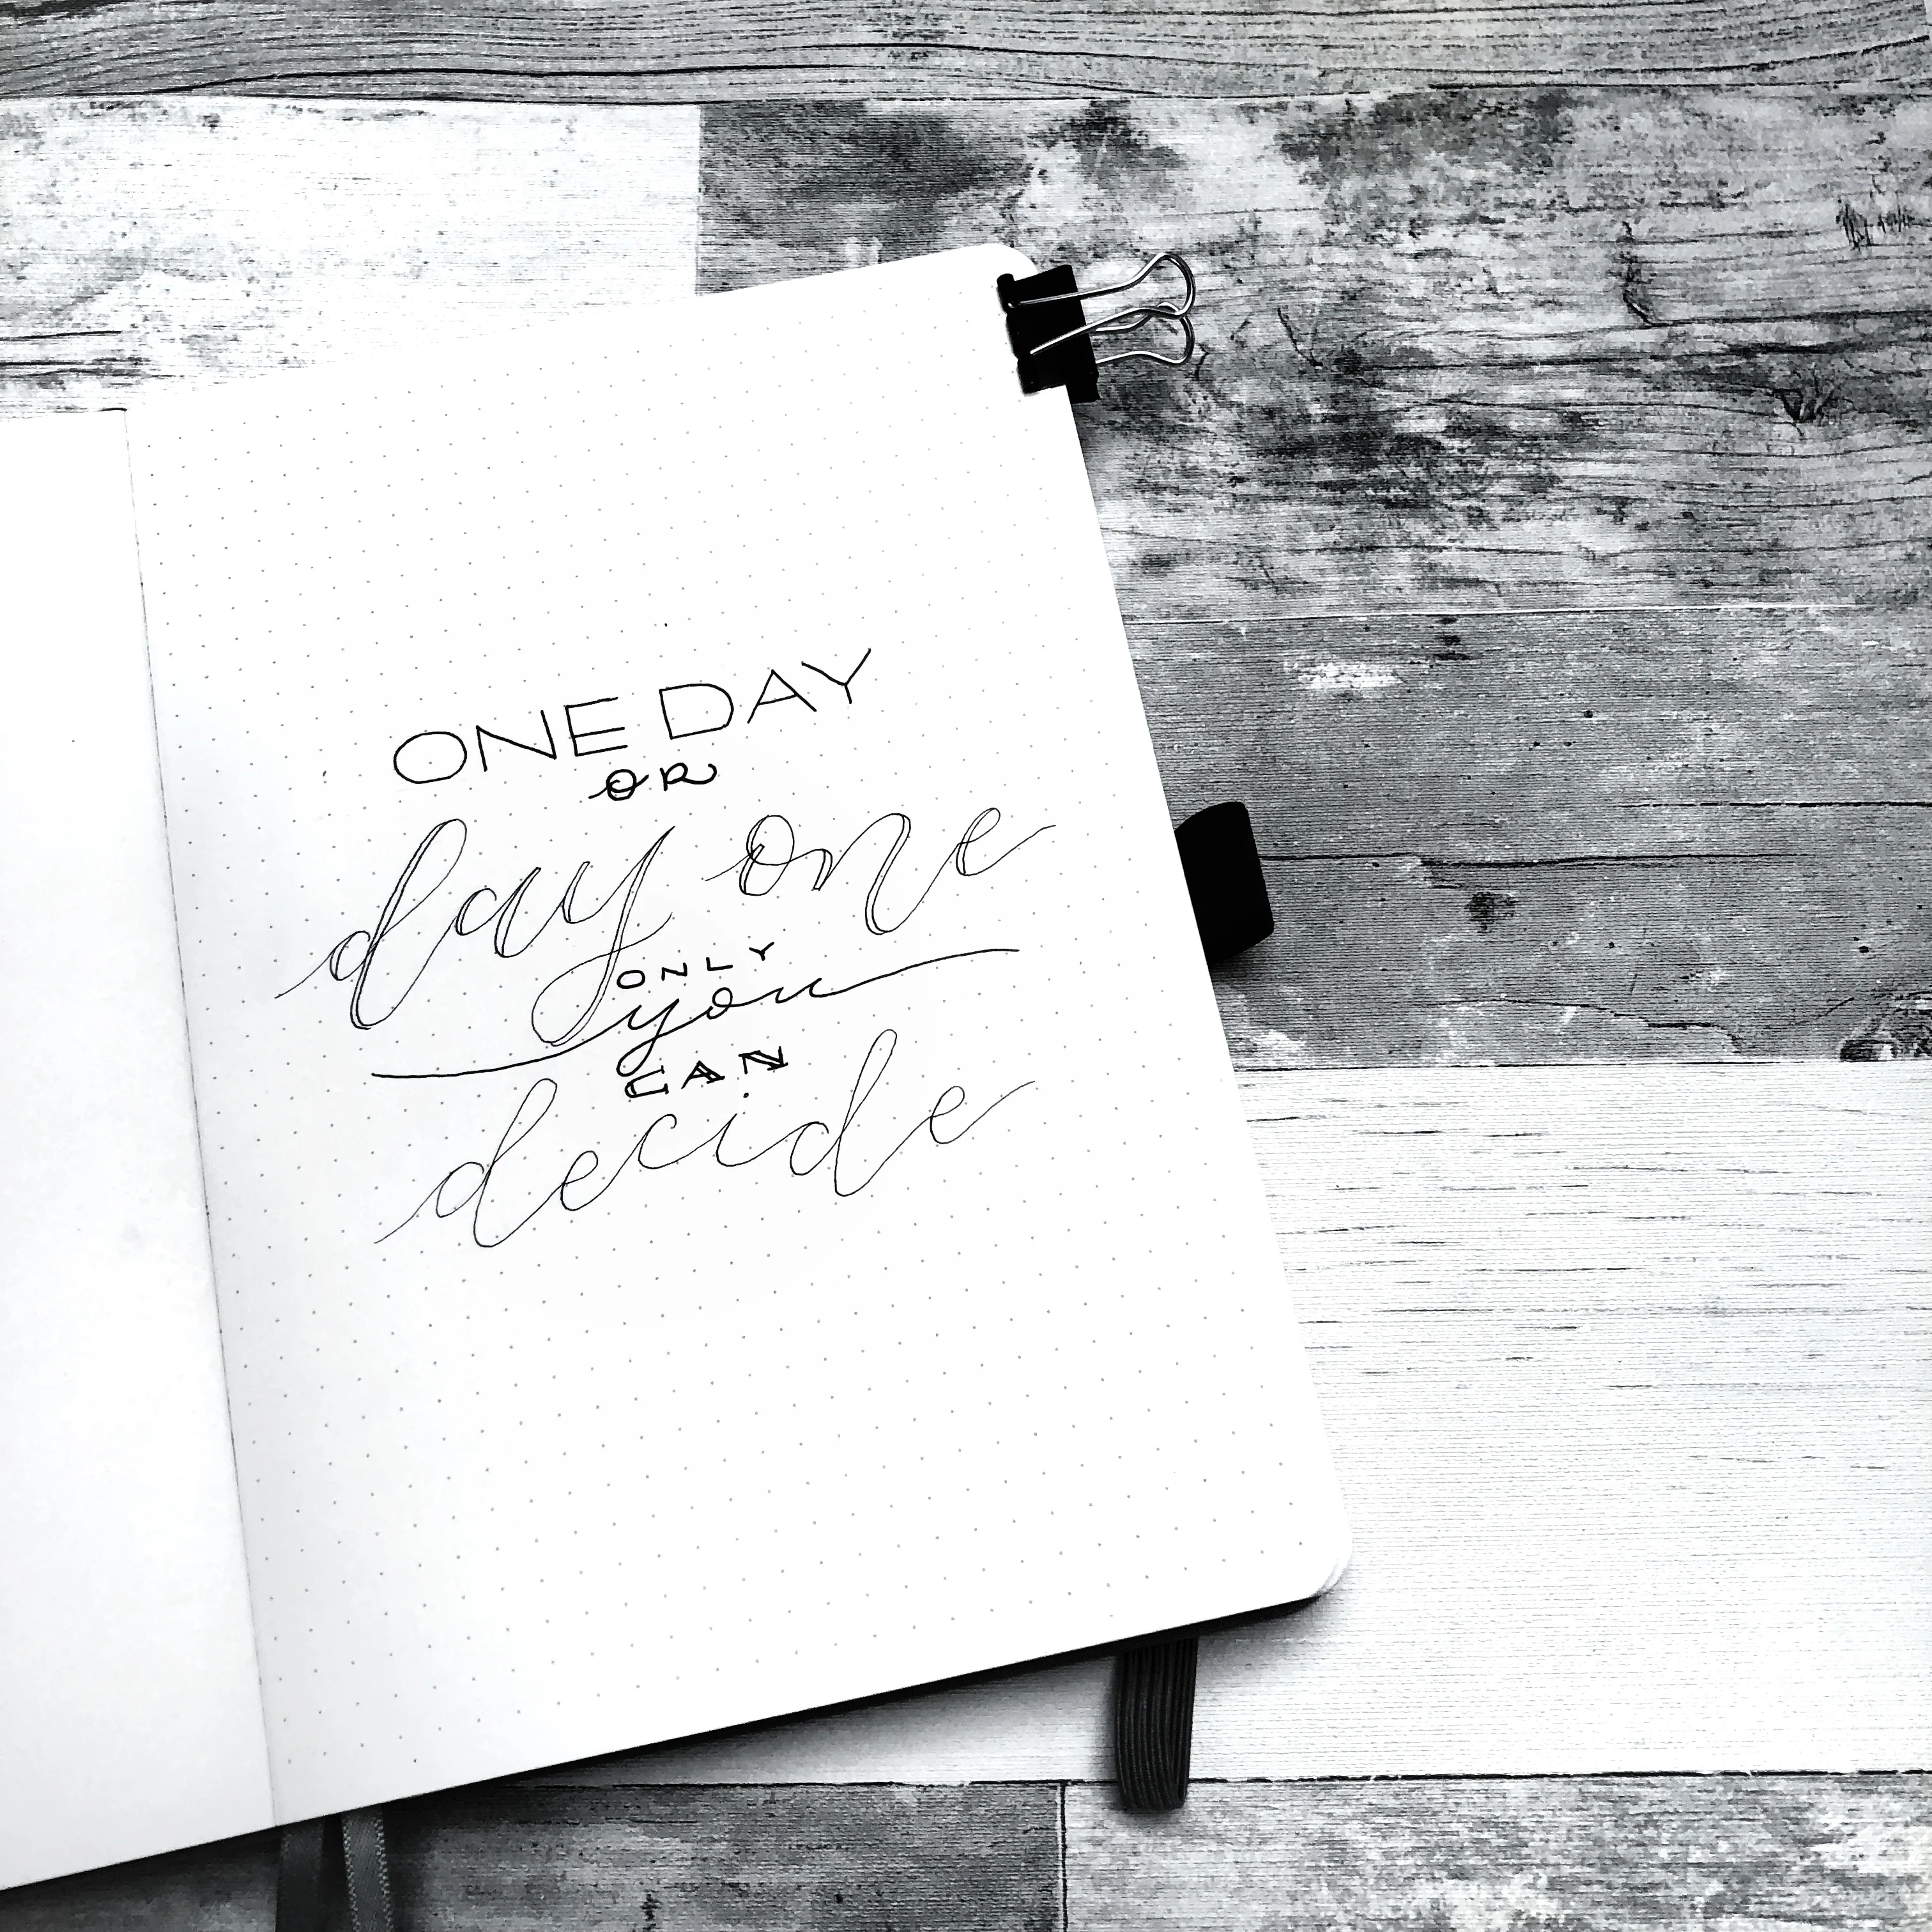 ONE DAY
OR
day one
ONLY
you
CAN
decide